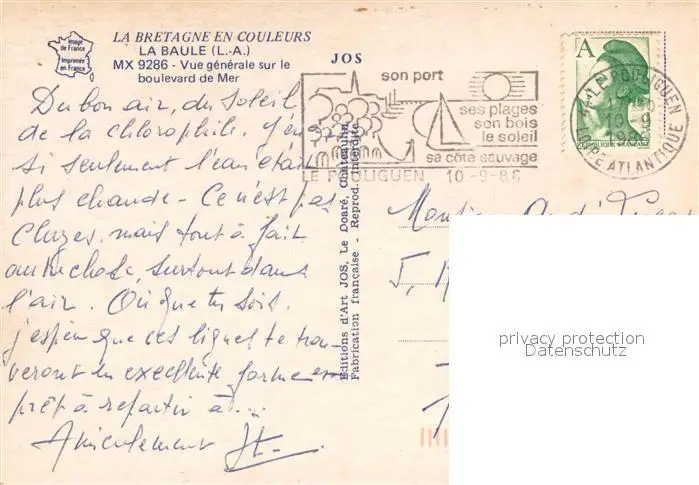 LA BRETAGNE EN COULEURS
LA BAULE (L.-A.)
MX 9286 - Vue générale sur le
boulevard de Mer
Image
de France
Imprimée
en France
JOS
Du bon air, du soleil
de la chlorophile.
si seulement l'eau était
plus chaude - Ce n'est pas
Cluzes, mais tout à fait
autre chose, surtout dans
l'air. Où que tu sois.
j'espère que ces lignes te trou-
veront en excellente forme et
prêt à repartir à...
Amicalement
Editions d'Art JOS, Le Doaré, Châteaulin
Fabrication française - Reprod. interdite
son port
ses plages
son bois
le soleil
sa côte sauvage
LE POULIGUEN 10-9-86
A
REPUBLIQUE FRANÇAISE
LE POULIGUEN
10-9
LOIRE ATLANTIQUE
Monsieur
5,
privacy protection
Datenschutz